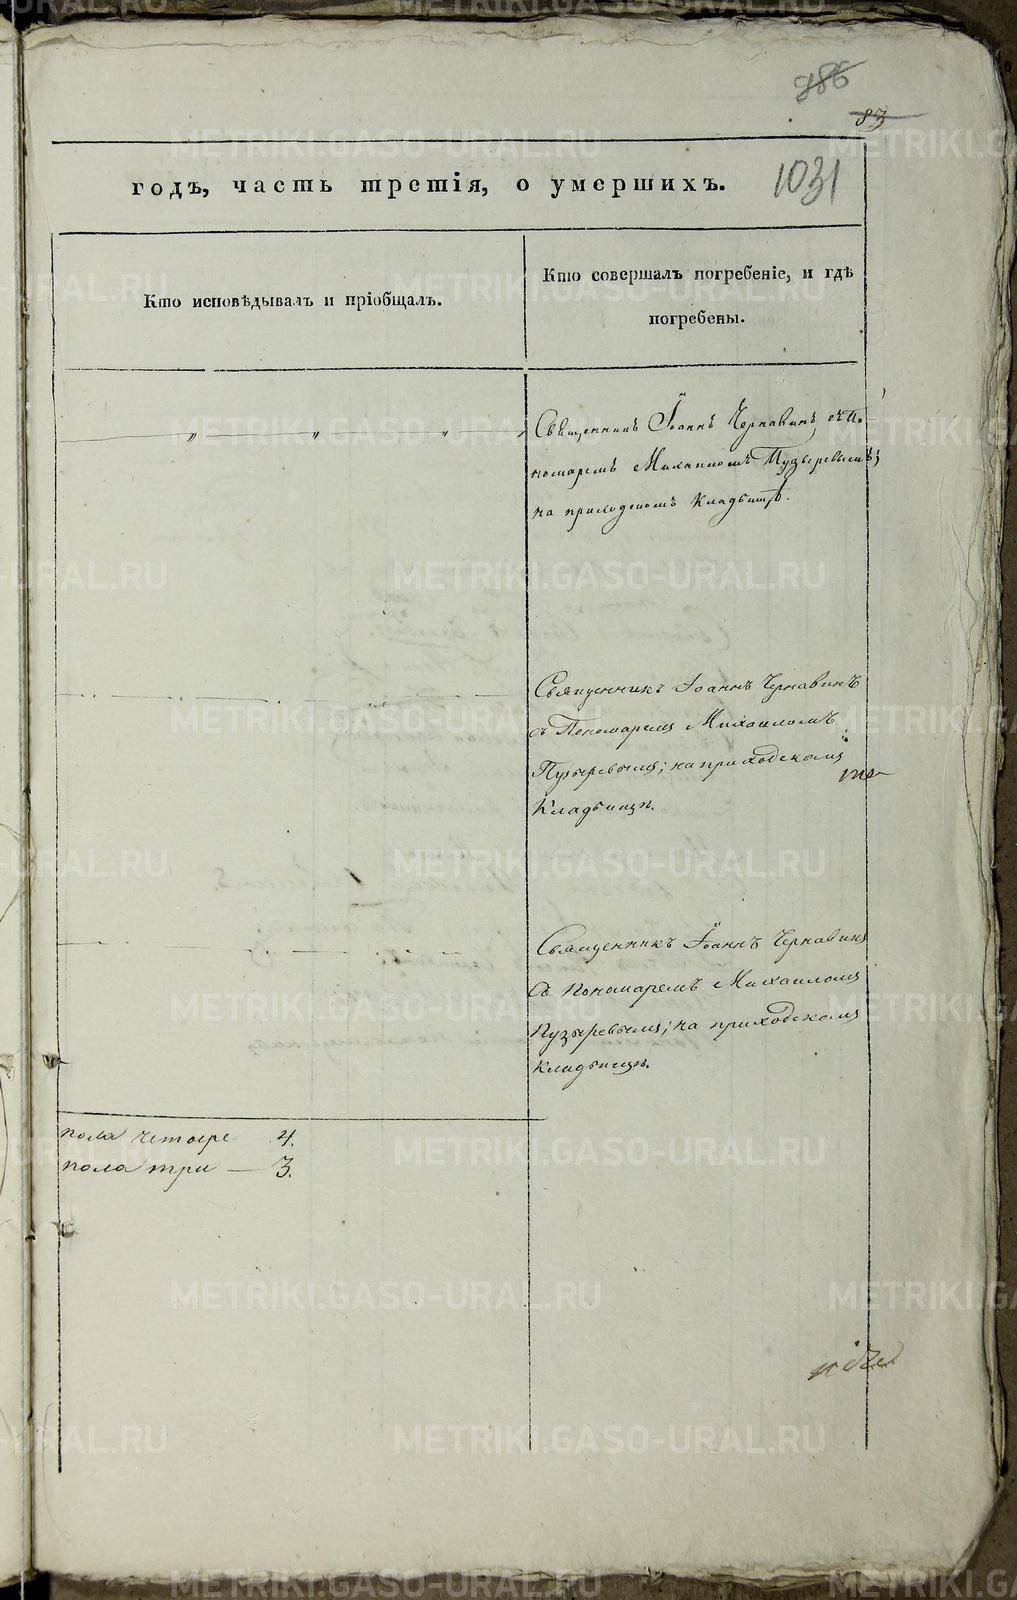 786
83
годъ, часть третія, о умершихъ.
1031
Кто исповѣдывалъ и пріобщалъ.
Кто совершалъ погребеніе, и гдѣ
погребены.
Священникъ Іоаннъ Чернавинъ, съ По-
номаремъ Михаиломъ Пузыревымъ;
на приходскомъ Кладбищѣ.
Священникъ Іоаннъ Чернавинъ
съ Пономаремъ Михаиломъ
Пузыревымъ; на приходскомъ
Кладбищѣ.
Священникъ Іоаннъ Чернавинъ
Съ Пономаремъ Михаиломъ
Пузыревымъ; на приходскомъ
кладбищѣ.
пола четыре 4.
пола три — 3.
METRIKI.GASO-URAL.RU